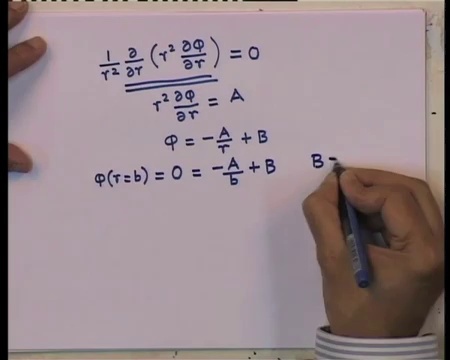 1/r² ∂/∂r (r² ∂φ/∂r) = 0
r² ∂φ/∂r = A
φ = -A/r + B
φ(r=b) = 0 = -A/b + B   B =